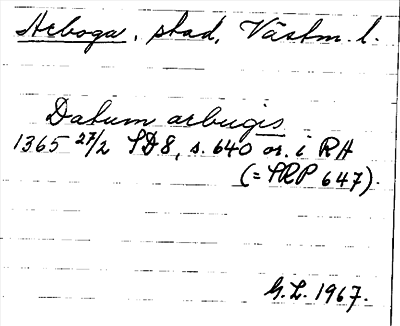 Arboga, stad, Västm. l.
Datum arbugis
1365 27/2 SD8, s. 640 or. i RA
(= SRP 647).
G.L. 1967.